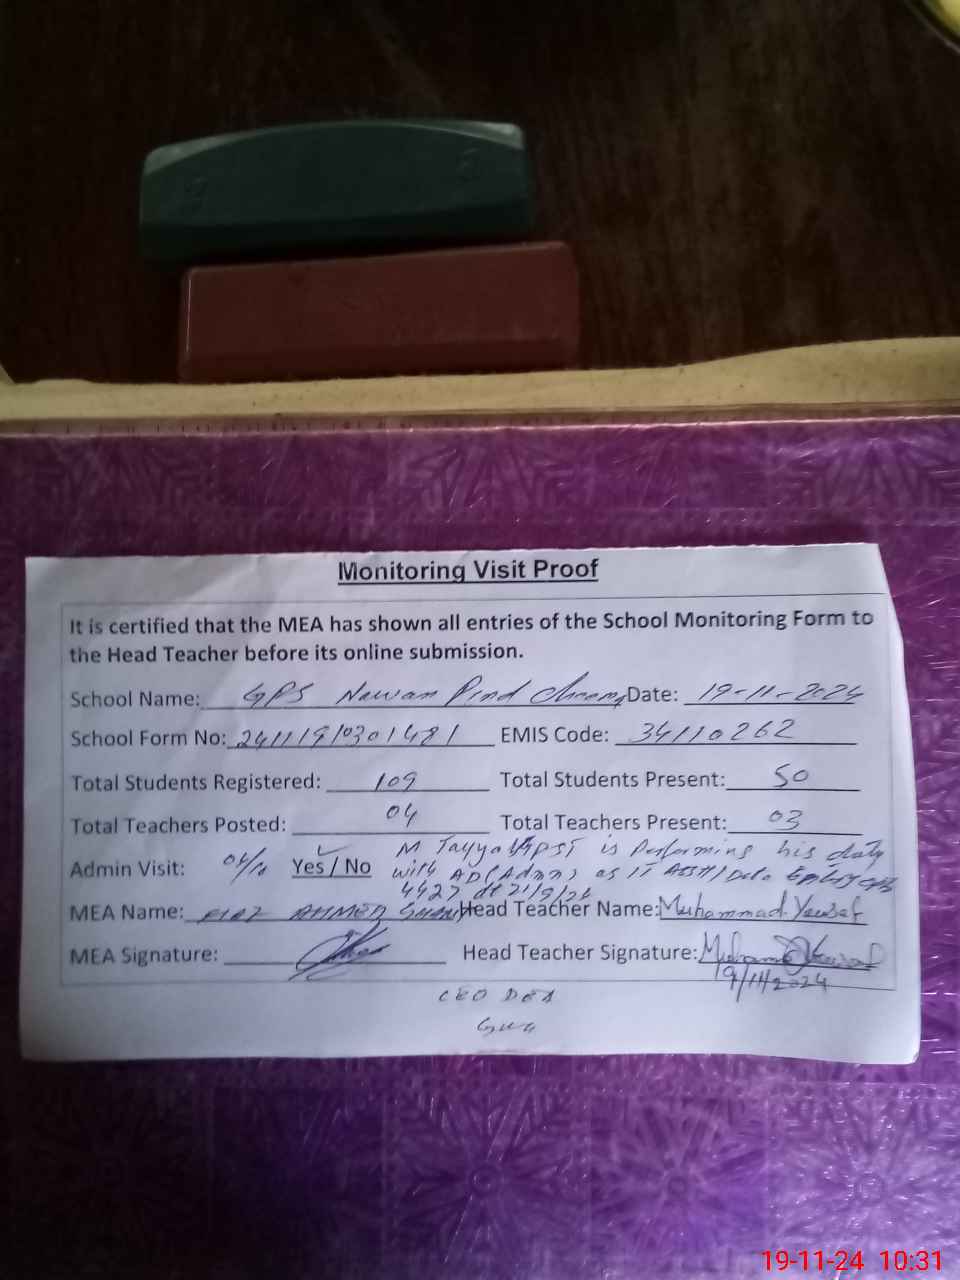 Monitoring Visit Proof
It is certified that the MEA has shown all entries of the School Monitoring Form to
the Head Teacher before its online submission.
School Name: GPS Nawan Pind Date: 19-11-2024
School Form No: 24111910301481 EMIS Code: 34110262
Total Students Registered: 109 Total Students Present: 50
Total Teachers Posted: 04 Total Teachers Present: 03
M Tayyab PST is Performing his duty
Admin Visit: Yes / No with AD (Admn) as IT Asstt/Data
4427 dt 21/9/24
MEA Name: AHMED Head Teacher Name: Muhammad Yousaf
MEA Signature: Head Teacher Signature: Muhammad Yousaf
19/11/2024
CEO DEA
19-11-24 10:31